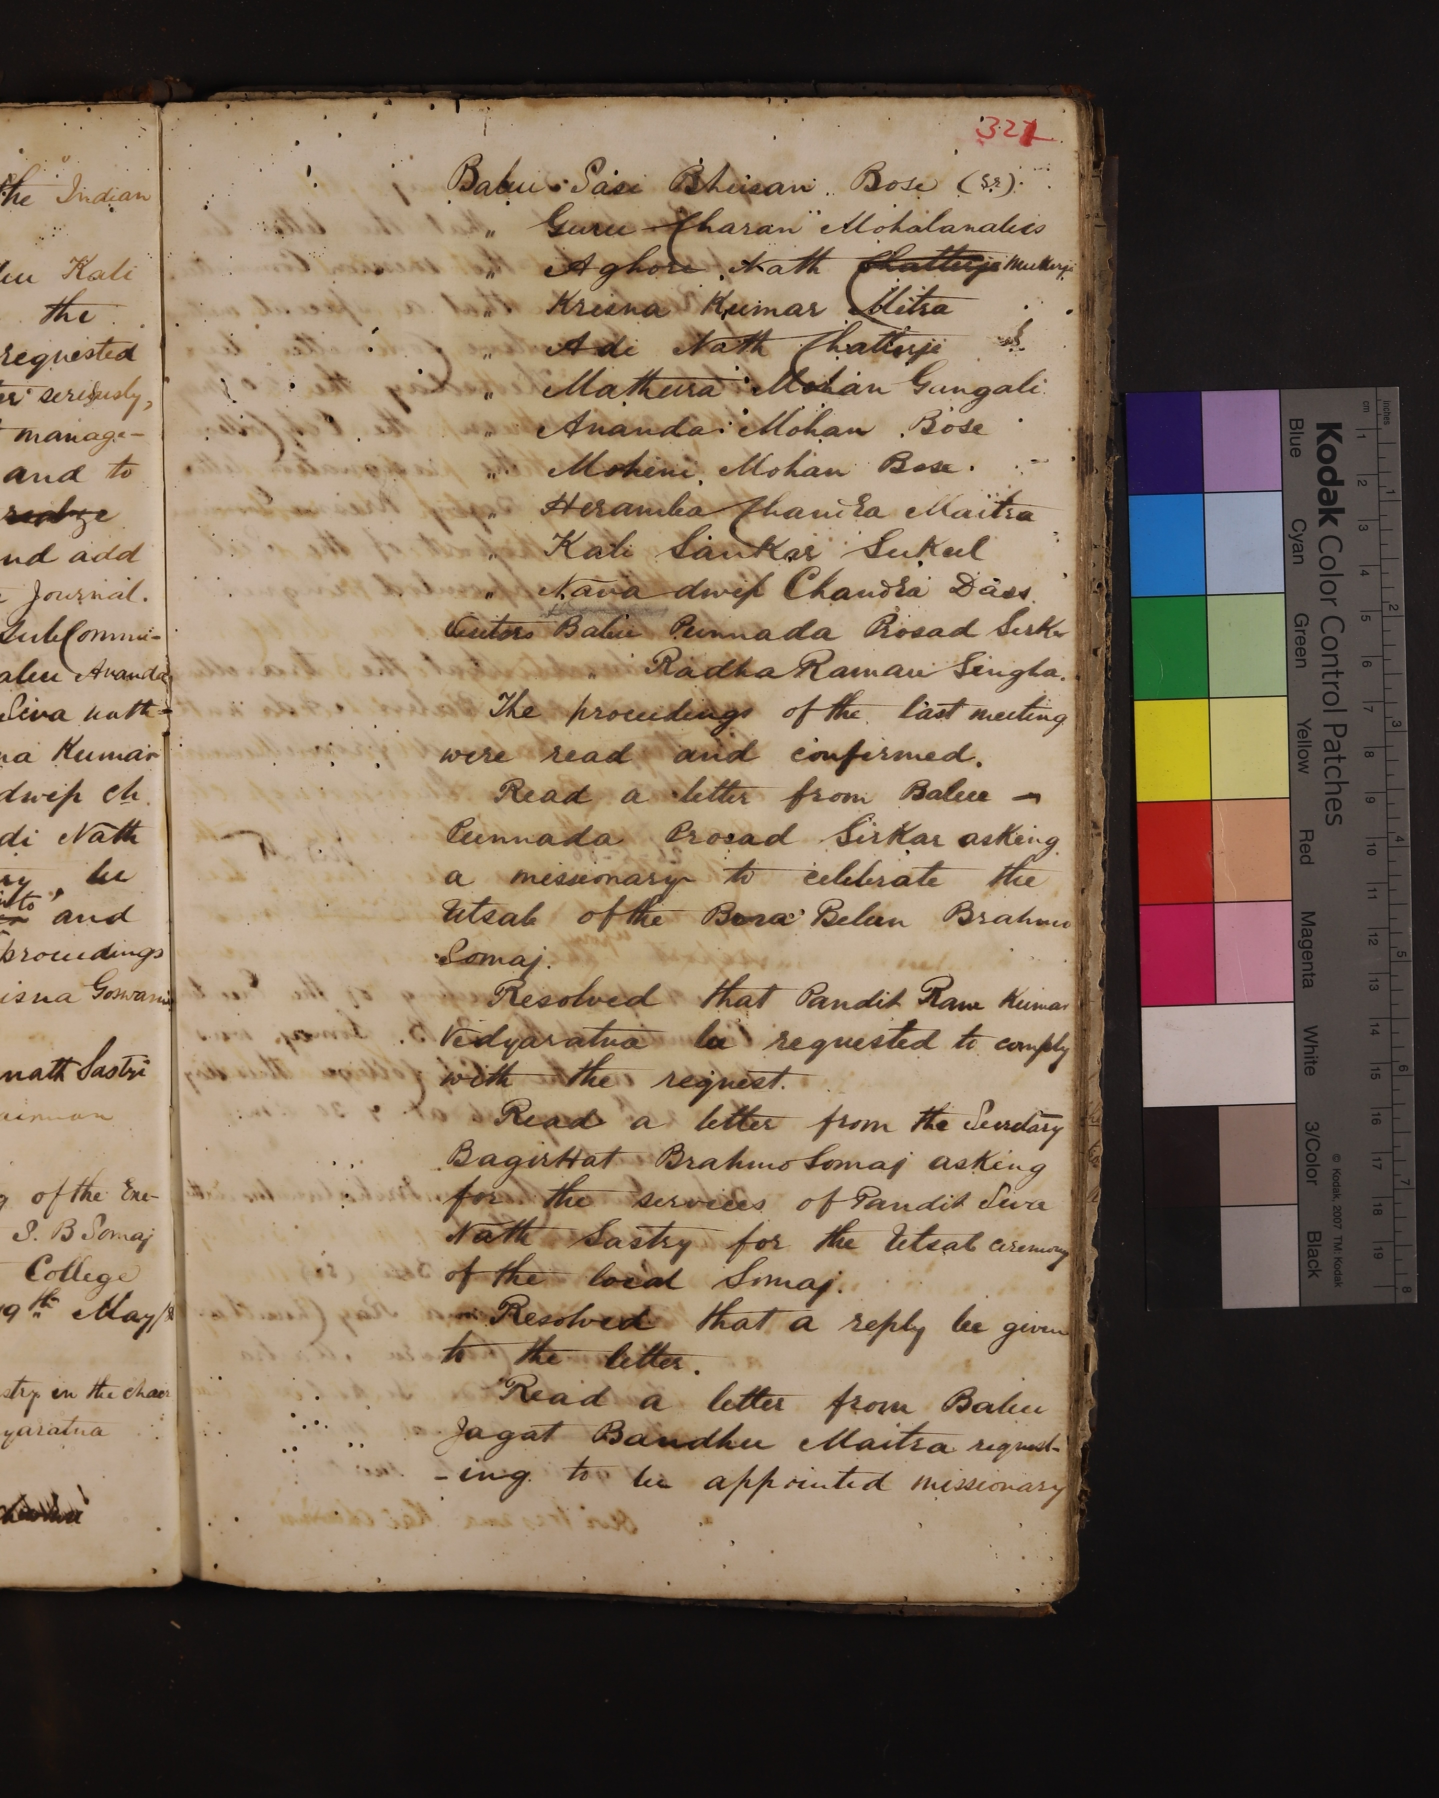 the Indian
Kali
the
requested
seriously,
manage-
and to
realize
and add
Journal.
Sub Commi-
Ananda
Siva nath
Kumar
dwip Ch
di Nath
be
to
and
proceedings
isna Goswami
nath Sastri
of the Exe-
S. B Somaj
College
9th May
in the chair
yaratna
321
Babu Sasi Bhusan Bose (Sr).
" Guru Charan Mohalanabis
" Aghore Nath Chatterje Mukerje
" Krisna Kumar Mitra
" Adi Nath Chatterje
" Mathura Mohan Gungali
" Ananda Mohan Bose
" Mohini Mohan Bose.
" Heramba Chandra Maitra
" Kali Sankar Sukul
" Nava dwip Chandra Dass
Visitors Babu Punnada Prosad Sirkar
" Radha Raman Singha.
The proceedings of the last meeting
were read and confirmed.
Read a letter from Babu
Punnada Prosad Sirkar asking
a missionary to celebrate the
Utsab of the Bora Belun Brahmo
Somaj.
Resolved that Pandit Ram Kumar
Vidyaratna be requested to comply
with the request.
Read a letter from the Secretary
Bagirhat Brahmo Somaj asking
for the services of Pandit Siva
Nath Sastry for the Utsab ceremony
of the local Somaj.
Resolved that a reply be given
to the letter.
Read a letter from Babu
Jagat Bandhu Maitra request-
-ing to be appointed missionary
Kodak Color Control Patches
Blue Cyan Green Yellow Red Magenta White 3/Color Black
© Kodak, 2007 TM: Kodak
cm 1 2 3 4 5 6 7 8 9 10 11 12 13 14 15 16 17 18 19
inches 1 2 3 4 5 6 7 8